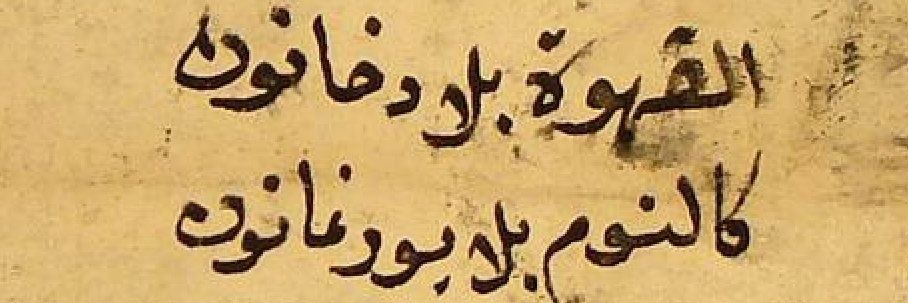 القهوة بلا دخانون
كالنوم بلا يورغانون